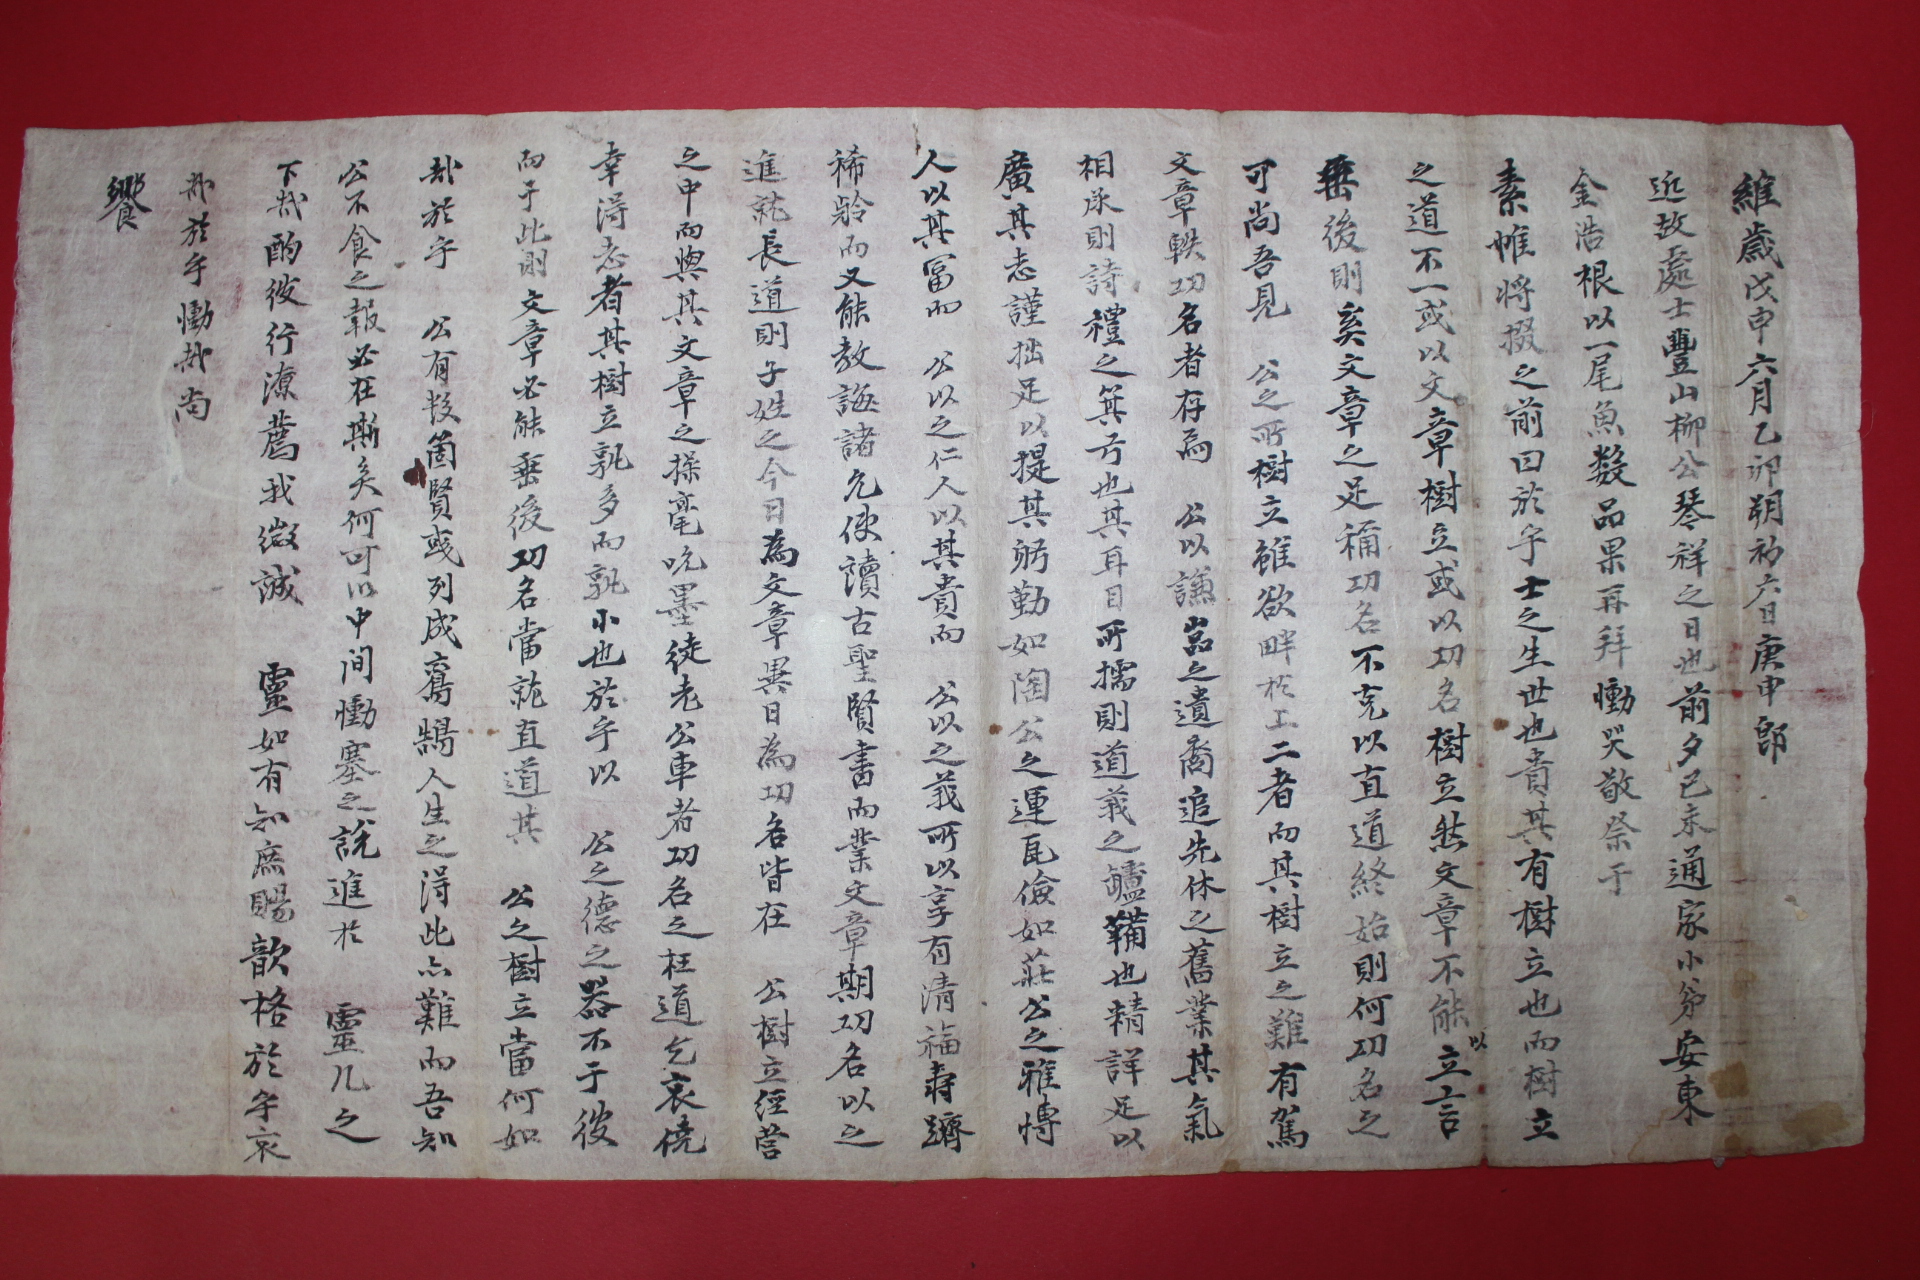 維歲戊申六月乙卯朔初六日庚申郎
近故處士豐山柳公琴祥之日也前夕己未通家小弟安東
金浩根以一尾魚數品果再拜慟哭敬祭于
素帷將掇之前曰於乎士之生世也貴其有樹立也而樹立
之道不一或以文章樹立或以功名樹立然文章不能以立言
垂後則奚文章之足稱功名不克以直道終始則何功名之
可尚吾見 公之所樹立雖欲畔於二者而其樹立之難有駕
文章軼功名者存焉 公以謙嵓之遺裔追先休之舊業其氣
相承則詩禮之箕弓也其耳目所擩則道義之鞴也精詳足以
廣其志謹拙足以提其躬勤如陶公之運瓦儉如莊公之雅愽
人以其富而 公以之仁人以其貴而 公以之義所以享有清福壽躋
稀齡而又能教誨諸允使讀古聖賢書而業文章期功名以之
進就長道則子姓之今日為文章異日為功名皆在 公樹立經營
之中而與其文章之操毫吮墨徒老公車者功名之枉道乞哀僥
幸得志者其樹立孰多而孰小也於乎以 公之德之器不于彼
而于此則文章必能垂後功名當就直道其 公之樹立當何如
哉於乎 公有數箇賢彧列成鸞鵠人生之得此亦難而吾知
公不食之報必在斯矣何可以中間慟塞之說進於 靈几之
下哉酌彼行潦薦我微誠 靈如有知庶賜歆格於乎哀
哉於乎慟哉尚
饗